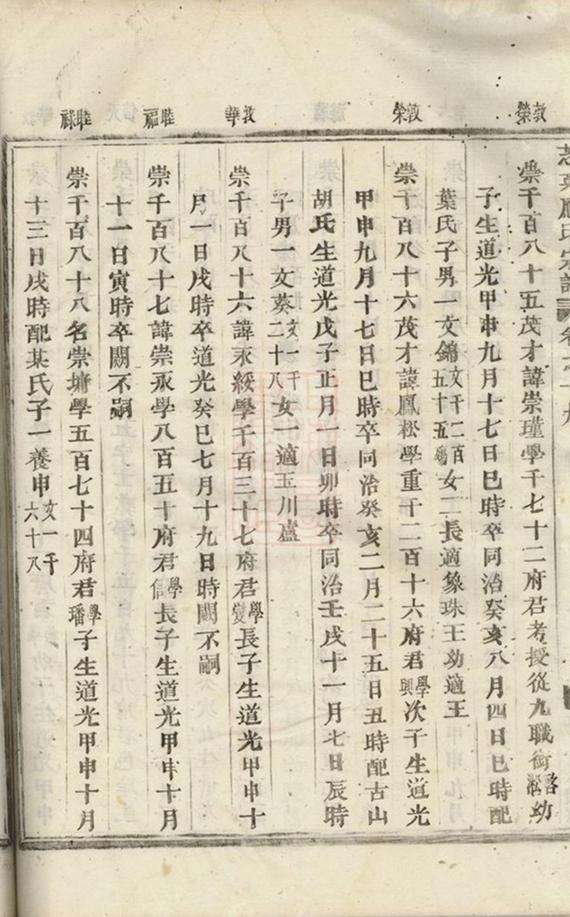 敦榮
敦榮
敦華
睦福
睦祿
應氏宗譜
崇千百八十五茂才諱崇瑾學千七十二府君考授從九職銜幼
子生道光甲申九月十七日巳時卒同治癸亥八月四日巳時配
葉氏子男一文錦文千二百五十五女二長適象珠王幼適王
崇千百八十六茂才諱鳳松學重千二百十六府君學興次子生道光
甲申九月十七日巳時卒同治癸亥二月二十五日丑時配古山
胡氏生道光戊子正月一日卯時卒同治壬戌十一月七日辰時
子男一文葵文一千二十八女一適玉川盧
崇千百八十六諱永綏學千百三十七府君學燮長子生道光甲申十
月一日戌時卒道光癸巳七月十九日時闕不嗣
崇千百八十七諱崇永學八百五十府君學信長子生道光甲申十月
十一日寅時卒闕不嗣
崇千百八十八名崇墉學五百七十四府君學璠子生道光甲申十月
十三日戌時配某氏子一養申文一千六十八